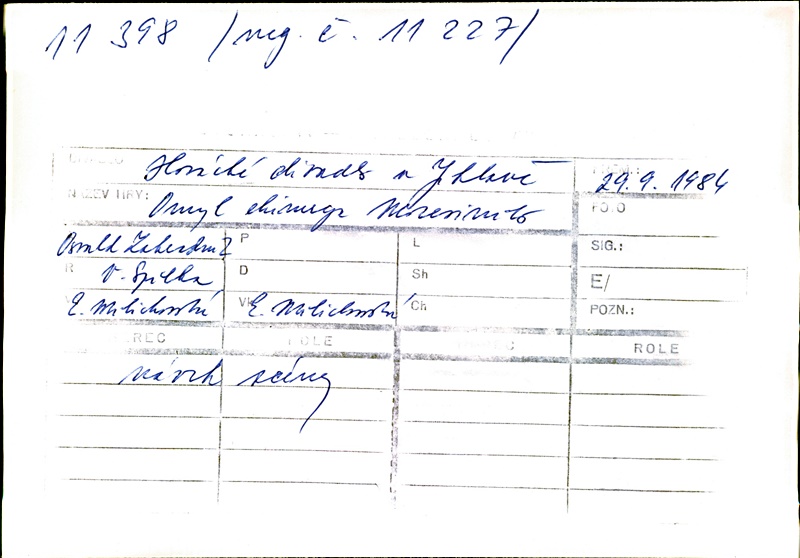 11 398 /neg. č. 11 227/
DIVADLO Horácké divadlo v Jihlavě 29.9.1984
NÁZEV HRY: Omyl chirurga Moresiniho FOTO
Osvald Zahradník P L SIG.:
R V. Spilka D Sh E/
E. Milichovská VK E. Milichovská Ch POZN.:
HEREC ROLE HEREC ROLE
návrh scény